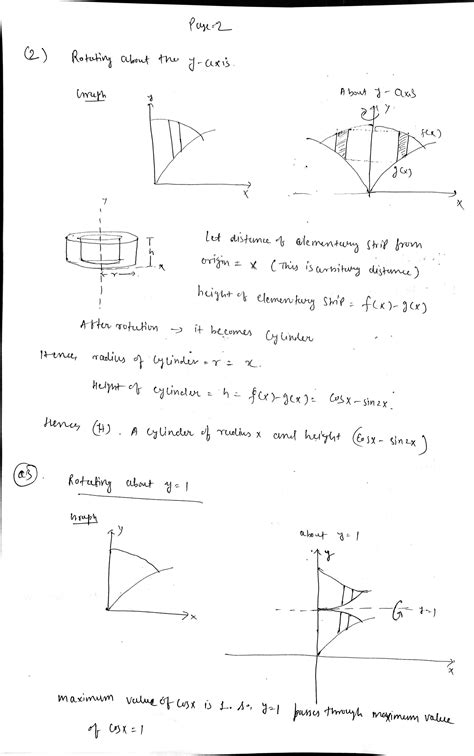 Page-2
(2) Rotating about the y-axis.
Graph
About y-axis
y
y
f(x)
g(x)
x
x
y
h
r
x
Let distance of elementary strip from
origin = x (This is arbitary distance)
height of elementary strip = f(x)-g(x)
After rotation → it becomes cylinder
Hence, radius of cylinder = r = x.
Height of cylinder = h = f(x)-g(x) = cosx - sin2x.
Hence (H). A cylinder of radius x and height (cosx - sin2x)
Q3. Rotating about y=1
Graph
about y=1
y
y
y=1
x
x
maximum value of cosx is 1. So, y=1 passes through maximum value
of cosx=1